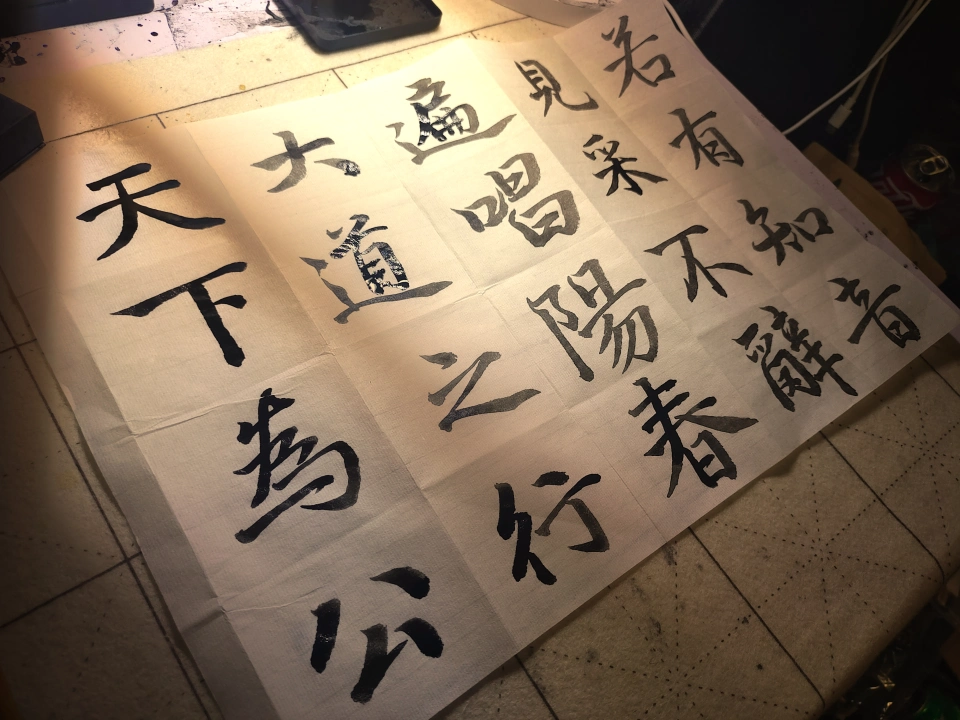 若有知音
見采不辭
遍唱陽春
大道之行
天下為公